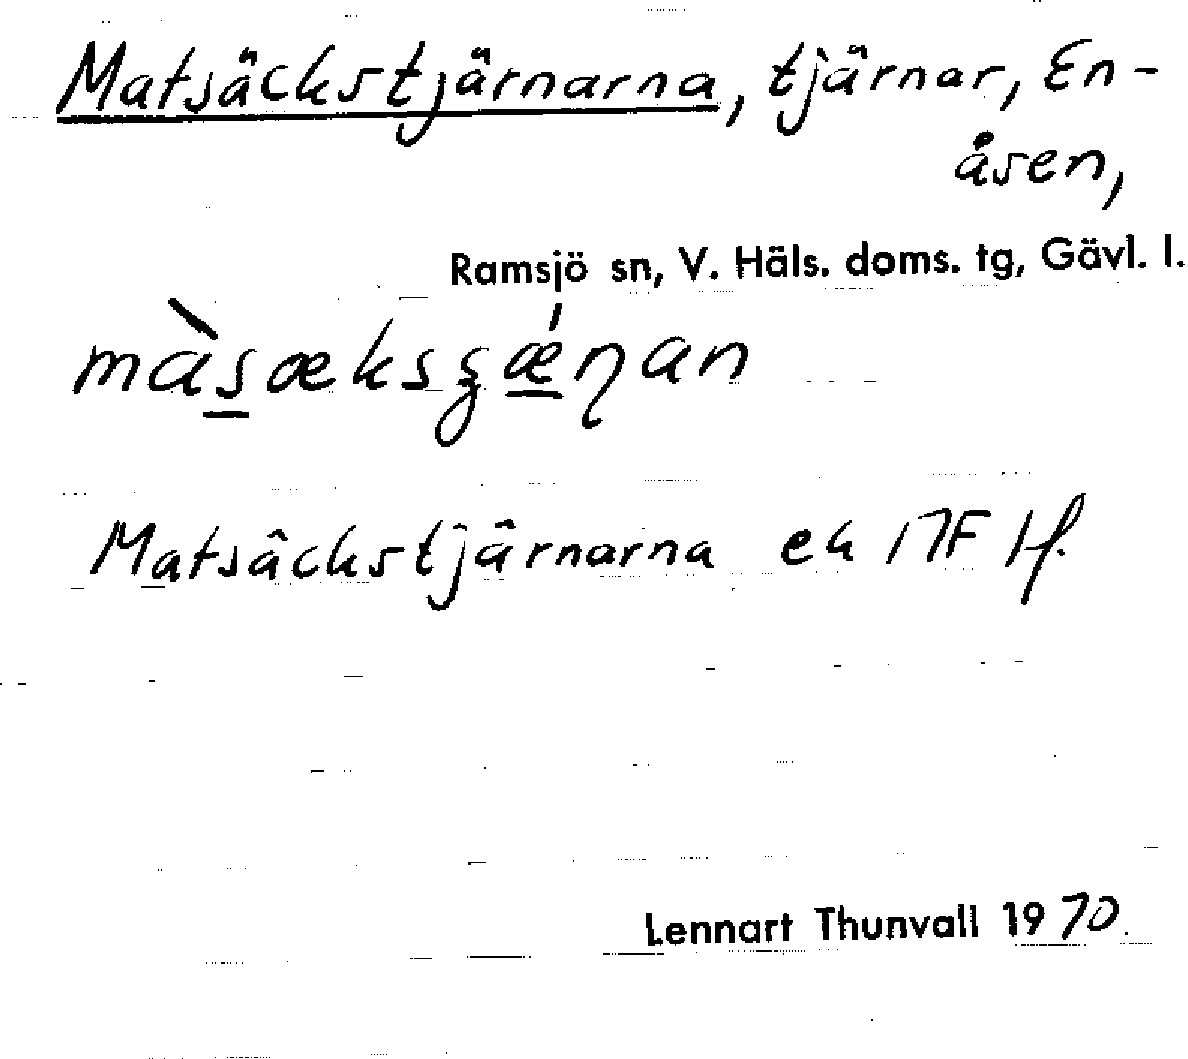 Matsäckstjärnarna, tjärnar, En-
åsen,
Ramsjö sn, V. Häls. doms. tg, Gävl. l.
Matsäckstjärnarna ek
Lennart Thunvall 1970.